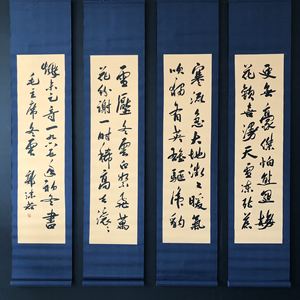 雪壓冬雲白絮飛萬
花紛謝一時稀高天滾滾
寒流急大地微微暖氣
吹獨有英雄驅虎豹
更無豪傑怕熊羆梅
花歡喜漫天雪凍死蒼
蠅未足奇一九六五年初冬書
毛主席冬雲